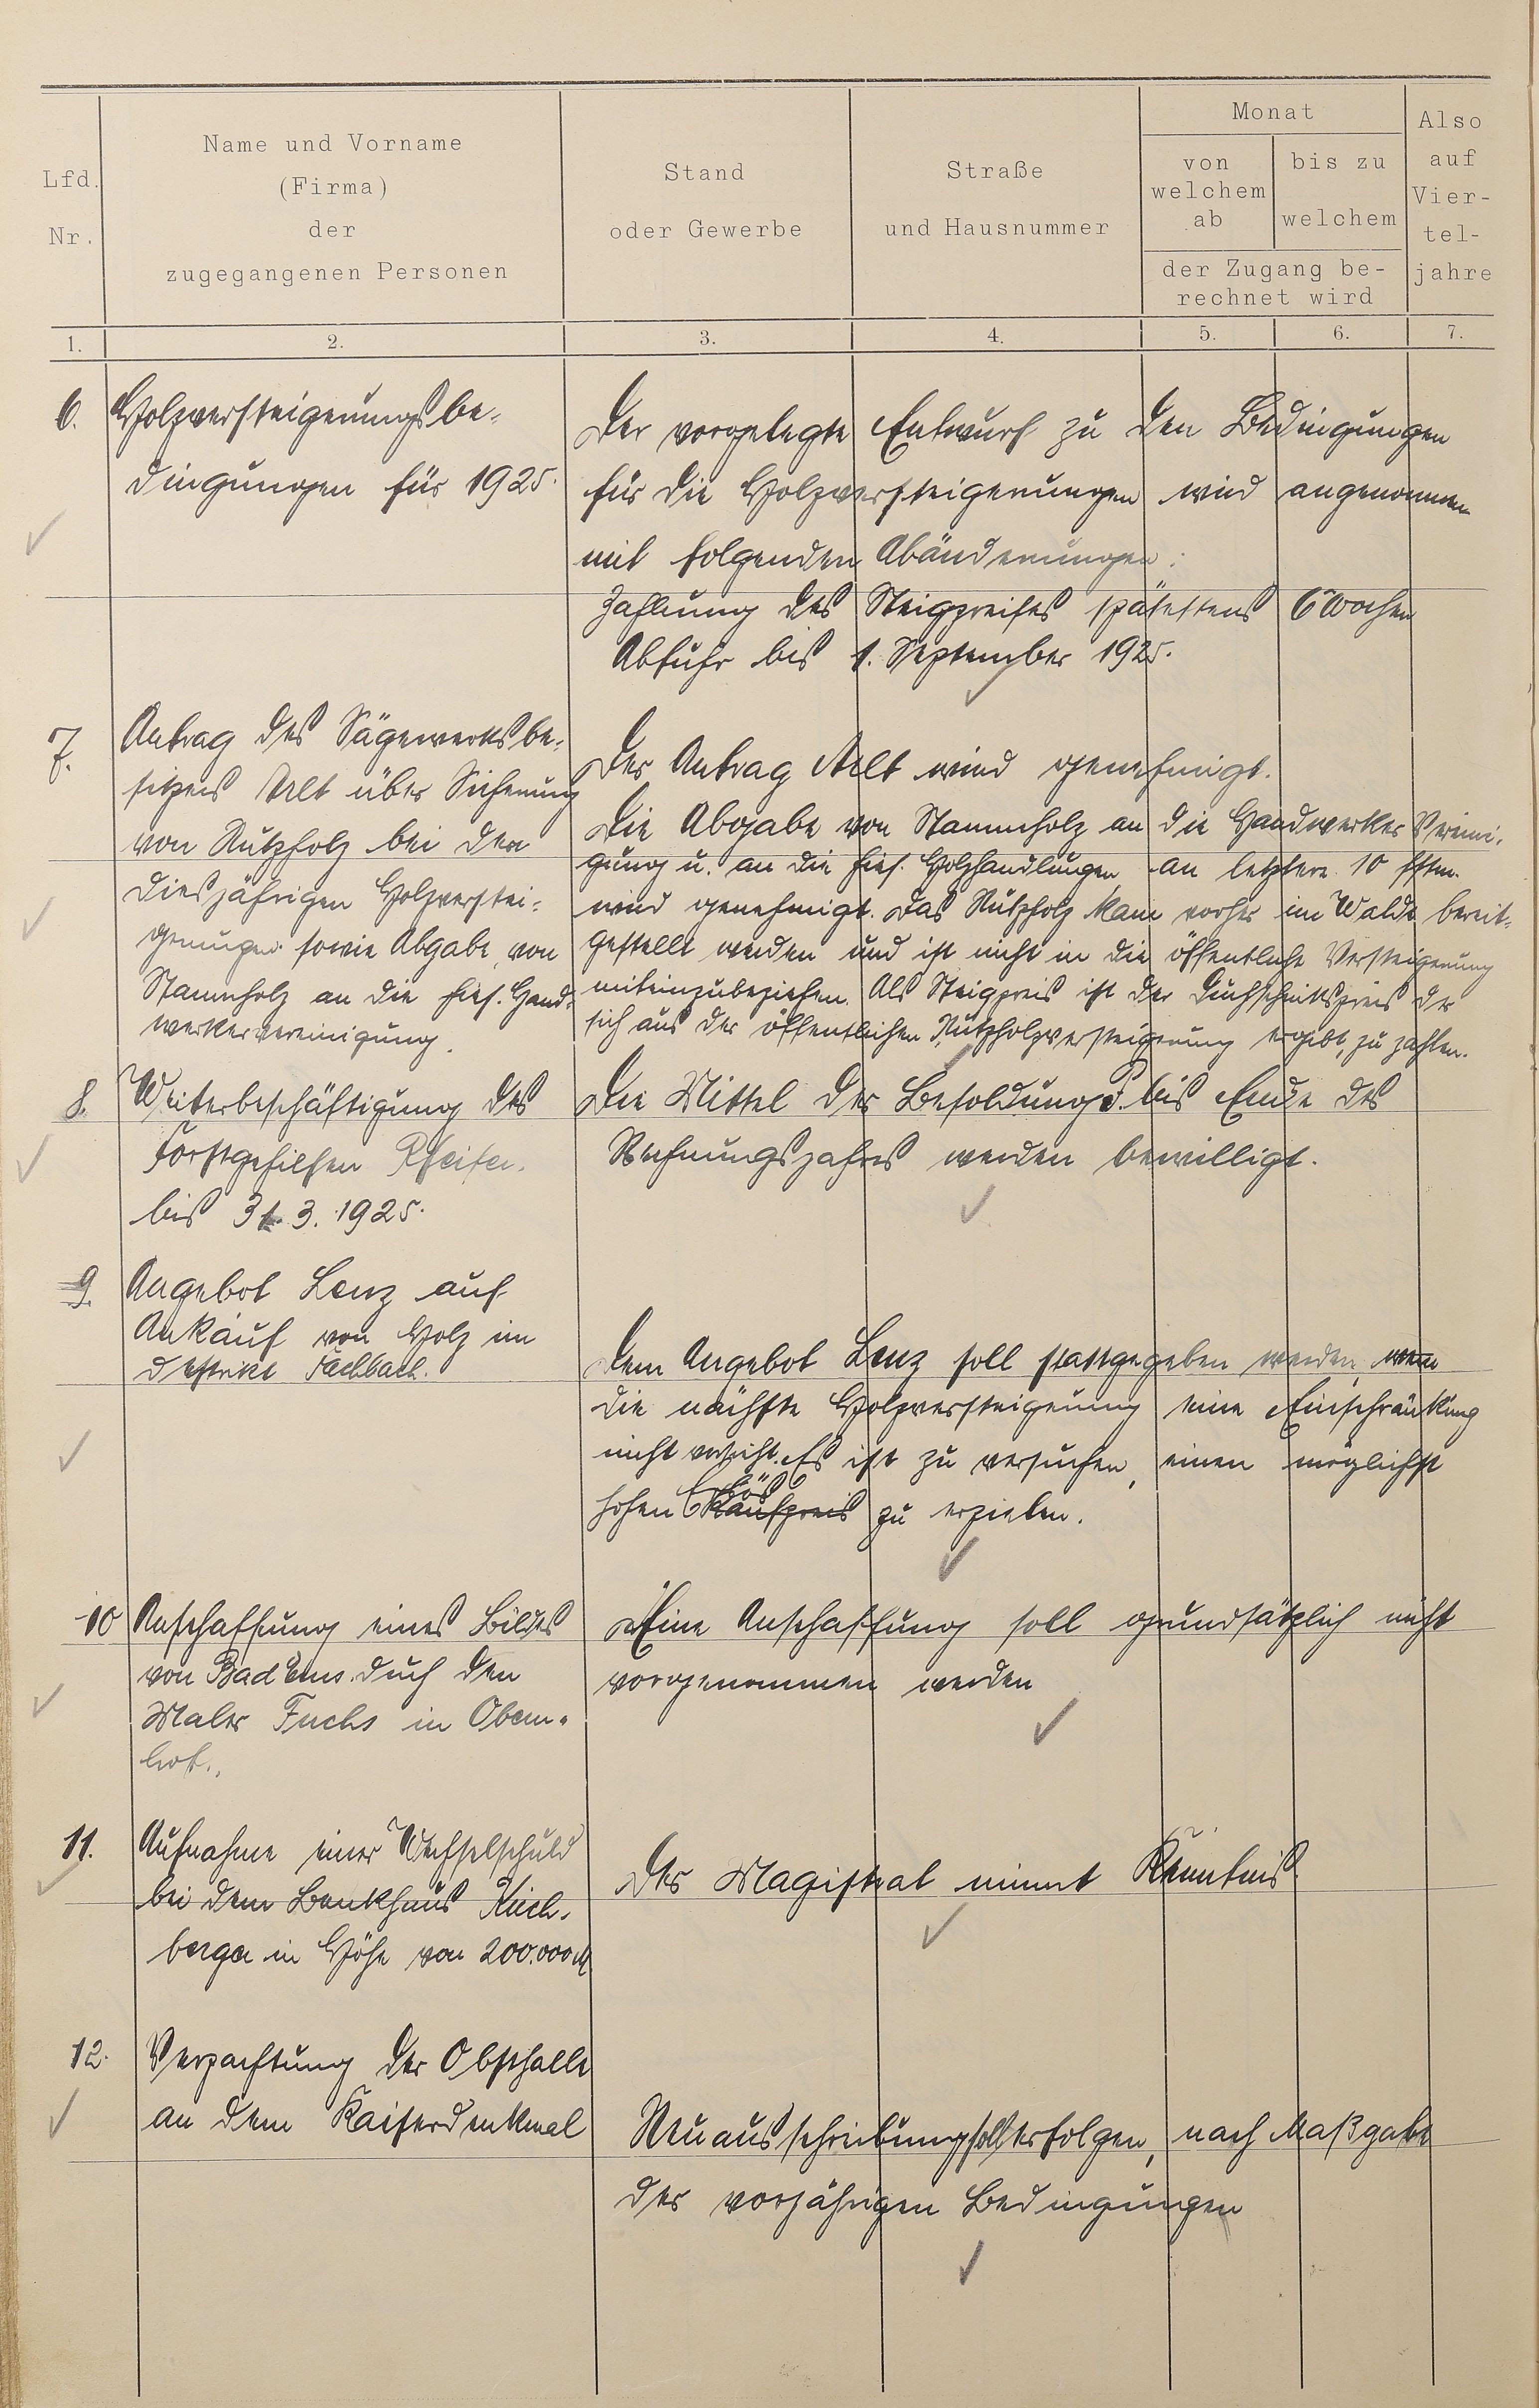 Lfd.
Nr.
Name und Vorname
(Firma)
der
zugegangenen Personen
Stand
oder Gewerbe
Straße
und Hausnummer
Monat
von
welchem
ab
bis zu
welchem
der Zugang be-
rechnet wird
Also
auf
Vier-
tel-
jahre
1. 2. 3. 4. 5. 6. 7.
6. Holzversteigerungsbe-
dingungen für 1925.
Der vorgelegte Entwurf zu den Bedingungen
für die Holzversteigerungen wird angenommen
mit folgenden Abänderungen:
Zahlung des Steigpreises spätestens 6 Wochen
Abfuhr bis 1. September 1925.
7. Antrag des Sägewerksbe-
sitzers Arlt über Sicherung
von Nutzholz bei den
diesjährigen Holzverstei-
gerungen sowie Abgabe von
Stammholz an die hies. Hand-
werkervereinigung.
Der Antrag Arlt wird genehmigt.
Die Abgabe von Stammholz an die Handwerker Vereini-
gung u. an die hies. Holzhandlungen an letztere 10 fstm.
wird genehmigt. Das Nutzholz kann vorher im Walde bereit-
gestellt werden und ist nicht in die öffentliche Versteigerung
miteinzubeziehen. Als Steigpreis ist der Durchschnittspreis der
sich aus der öffentlichen Nutzholzversteigerung ergibt, zu zahlen.
8. Weiterbeschäftigung des
Forstgehilfen Pfeifer
bis 31.3.1925.
Die Mittel der Besoldung bis Ende des
Rechnungsjahres werden bewilligt.
9. Angebot Lenz auf
Ankauf von Holz im
Distrikt Fachbach.
Dem Angebot Lenz soll stattgegeben werden, wenn
die nächste Holzversteigerung eine Einschränkung
nicht vorsieht. Es ist zu versuchen, einen möglichst
hohen Erlös Kaufpreis zu erzielen.
10 Anschaffung eines Bildes
von Bad Ems durch den
Maler Fuchs in Obern-
hof.
Eine Anschaffung soll grundsätzlich nicht
vorgenommen werden
11. Aufnahme einer Wechselschuld
bei dem Bankhaus Kirch-
berger in Höhe von 200.000 M
Der Magistrat nimmt Kenntnis.
12. Verpachtung der Obsthalle
an dem Kaiserdenkmal
Neuausschreibung soll erfolgen, nach Maßgabe
der vorjährigen Bedingungen